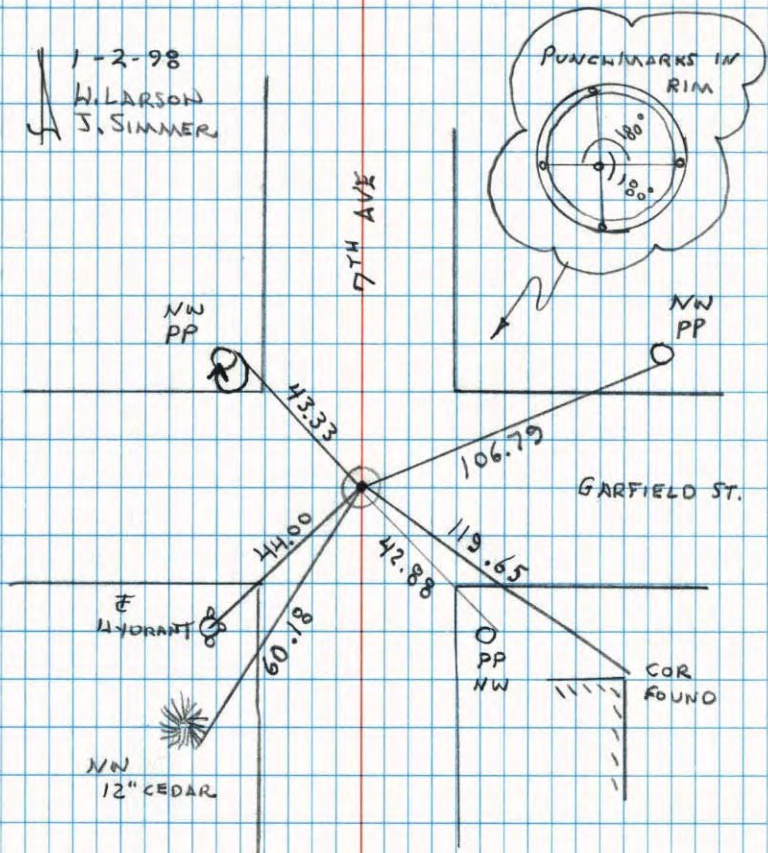 1-2-98
W. LARSON
J. SIMMER
PUNCHMARKS IN
RIM
180°
180°
7TH AVE
NW
PP
NW
PP
43.33
106.79
GARFIELD ST.
44.00
42.88
119.65
HYDRANT
60.10
PP
NW
COR
FOUND
NW
12" CEDAR